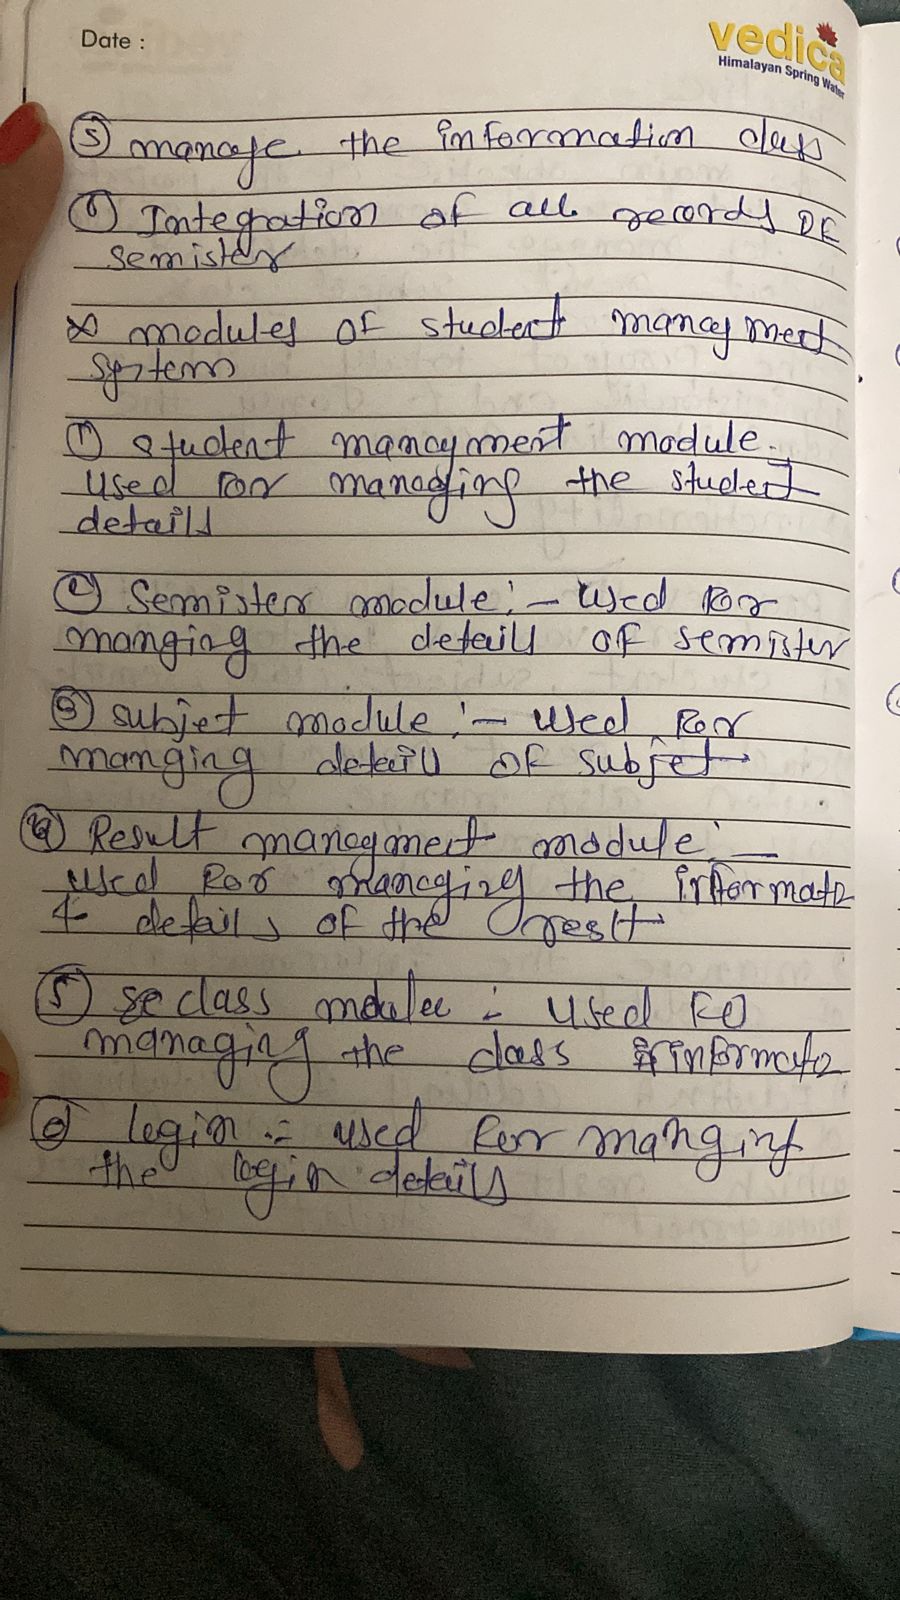 Date :
vedica
Himalayan Spring Water
⑤ manage the information class
⑥ Integration of all records of
semister
* modules of student managment
system
① student managment module-
used for managing the student
details
② Semister module :- used for
manging the details of semister
③ subjet module :- used for
manging details of subjet
④ Result managment module :-
used for managing the informatn
+ details of the reslt
⑤ class modulee :- used fo
managing the class informatn
⑥ login :- used for manging
the login details